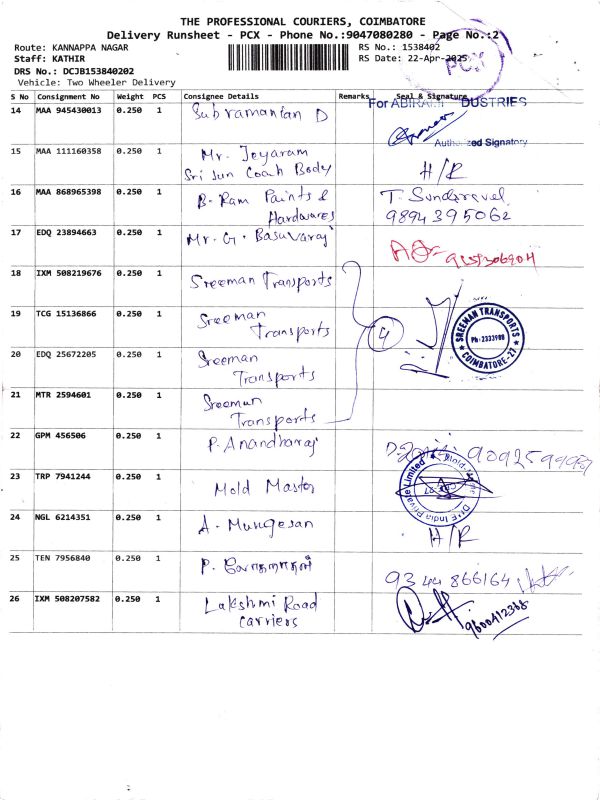 THE PROFESSIONAL COURIERS, COIMBATORE
Delivery Runsheet - PCX - Phone No.:9047080280 - Page No.:2
Route: KANNAPPA NAGAR RS No.: 1538402
Staff: KATHIR RS Date: 22-Apr-2025
PCX
DRS No.: DCJB153840202
Vehicle: Two Wheeler Delivery
S No Consignment No Weight PCS Consignee Details Remarks Seal & Signature
14 MAA 945430013 0.250 1 Subramanian D For ABIRAMI INDUSTRIES
Authorized Signatory
15 MAA 111160358 0.250 1 Mr. Jeyaram
Sri Sun Coach Body H/R
16 MAA 868965398 0.250 1 B. Ram Paints & T. Sundaravel
Hardwares 9894395062
17 EDQ 23894663 0.250 1 Mr. G. Basuvaraj
18 IXM 508219676 0.250 1 Sreeman Transports
19 TCG 15136866 0.250 1 Sreeman
Transports 4
SREEMAN TRANSPORTS
Ph: 2333988
COIMBATORE-27
20 EDQ 25672205 0.250 1 Sreeman
Transports
21 MTR 2594601 0.250 1 Sreeman
Transports
22 GPM 456506 0.250 1 P. Anandharaj
23 TRP 7941244 0.250 1 Mold Master
India Private Limited
24 NGL 6214351 0.250 1 A. Murugesan H/R
25 TEN 7956840 0.250 1 P. 9344866164
26 IXM 508207582 0.250 1 Lakshmi Road
Carriers 9600412368